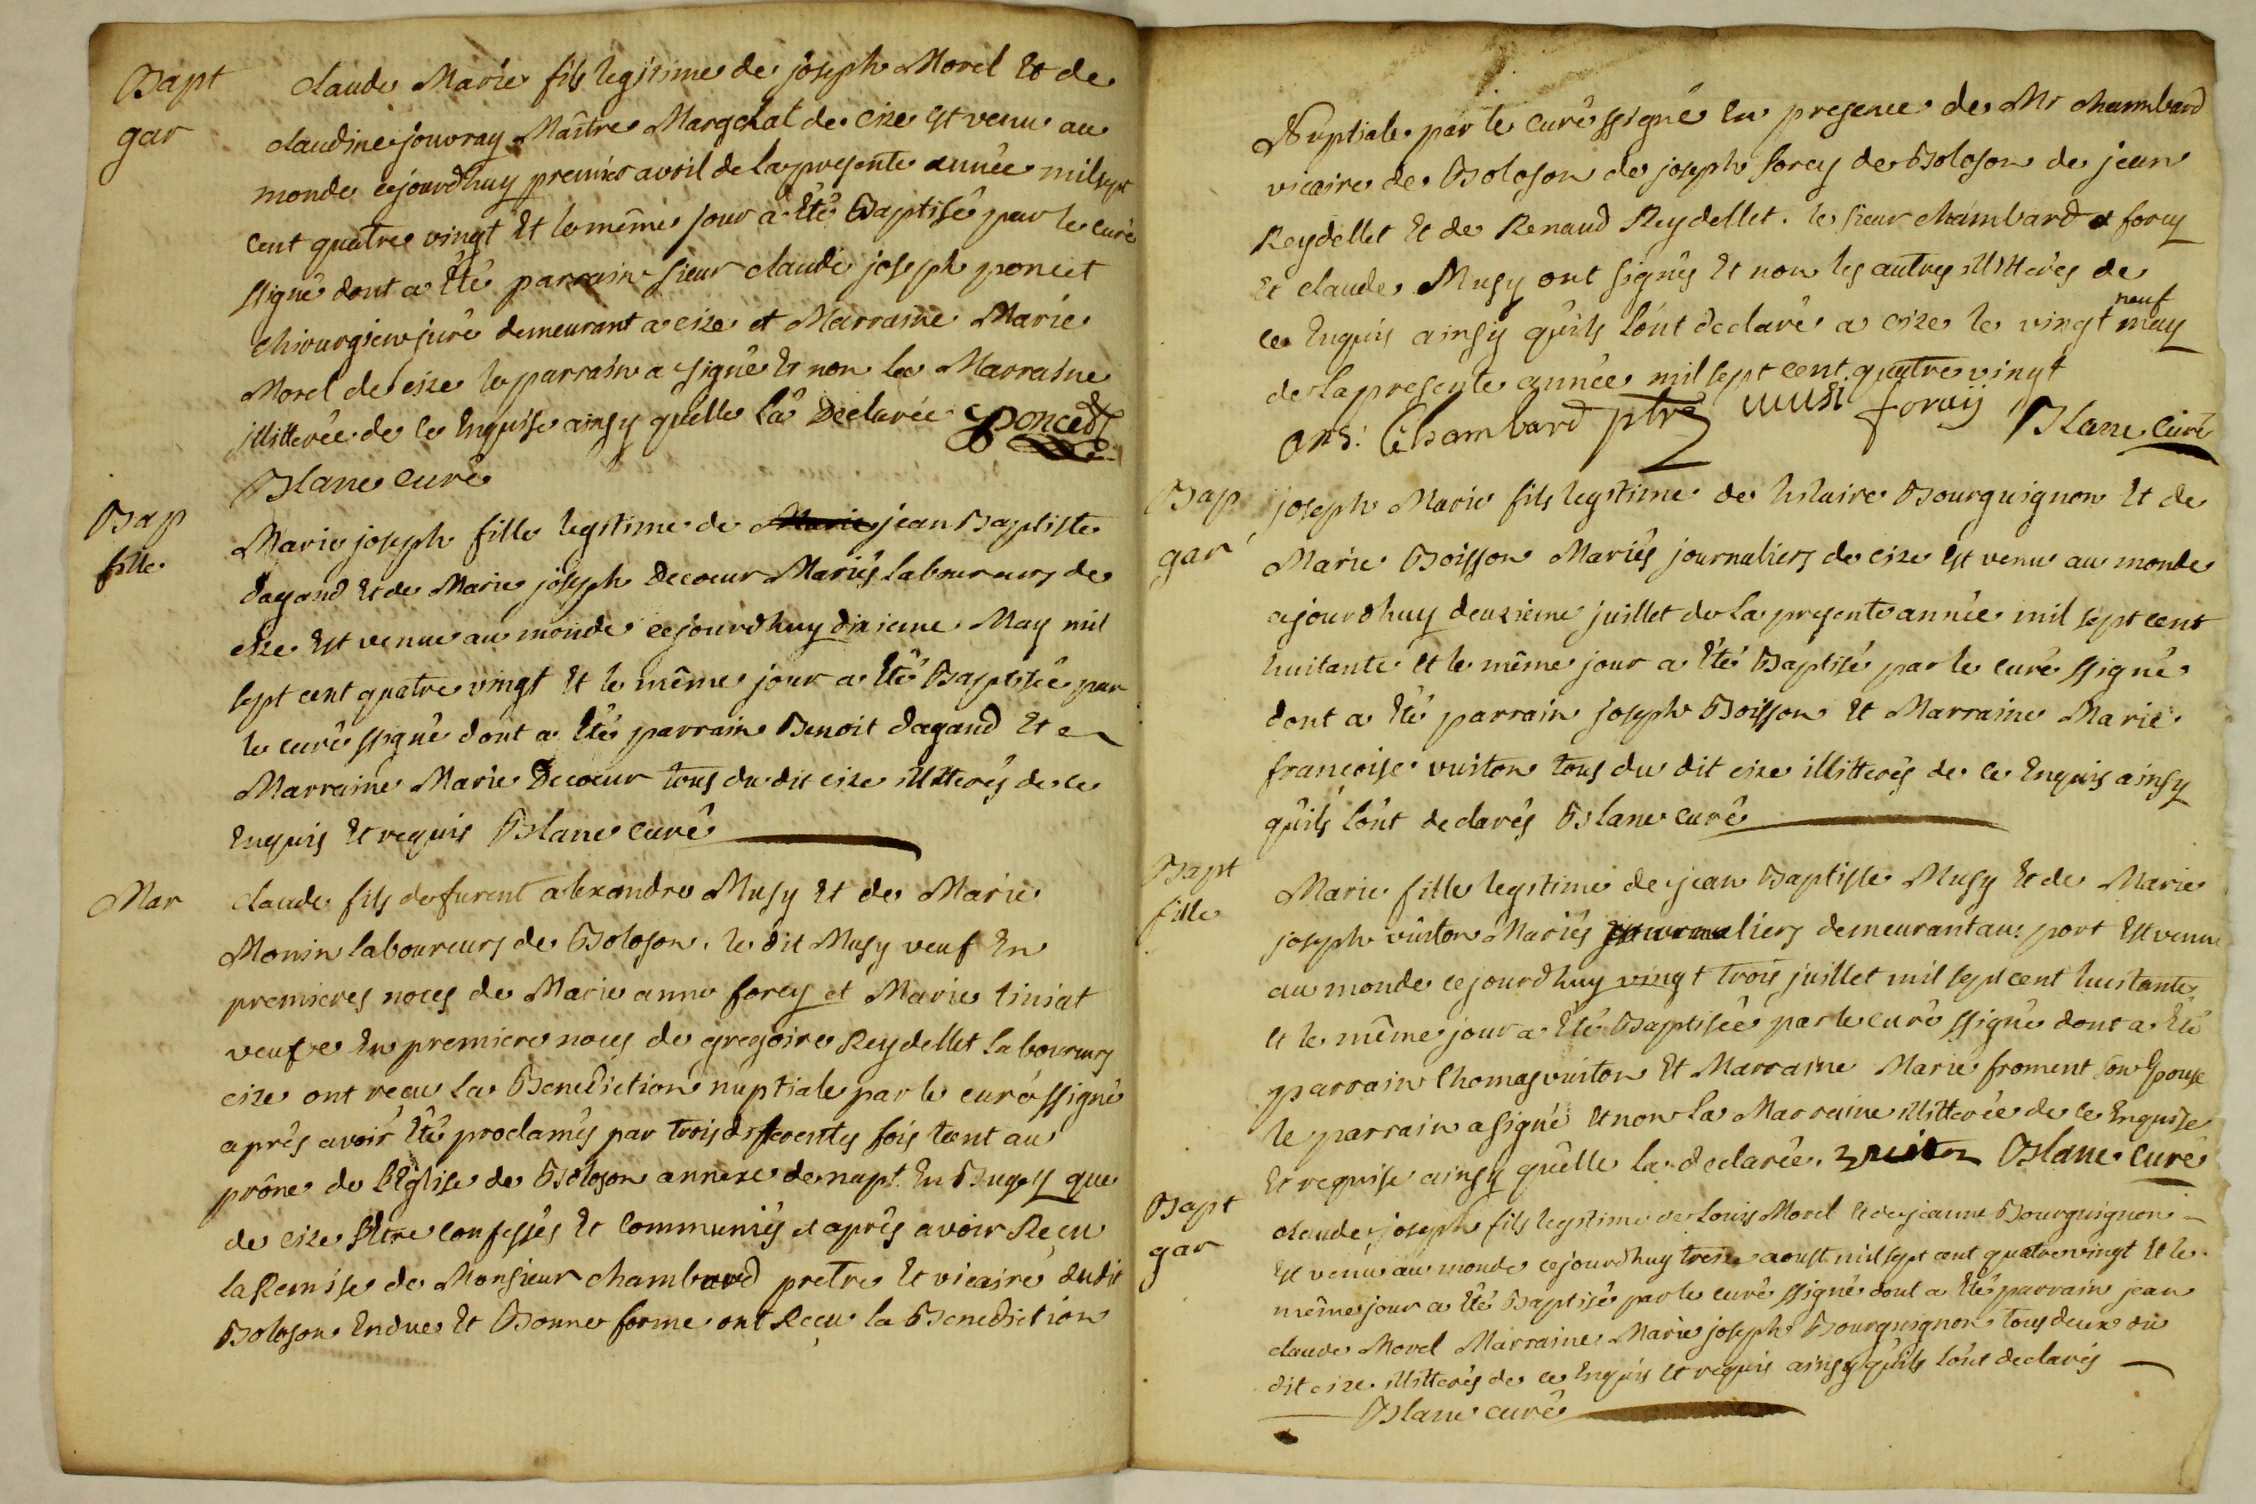 Bapt
gar
claude Marie fils legitime de joseph Morel Et de
claudine jouvray Maître Marechal de cize Est venu au
monde cejourdhuy premier avril de la presente année mil sept
cent quatre vingt Et le même jour a Eté Baptisé par le curé
ssigné dont a Eté parrain sieur claude joseph poncet
chirurgien juré demeurant a cize et Marraine Marie
Morel de cize le parrain a signé Et non la Marraine
illitterée de ce Enquise ainsy quelle la Declarée Poncet
Blanc curé
Bap
fille
Marie joseph fille legitime de Marie jean Baptiste
dagand Et de Marie joseph Decoeur Mariés laboureurs de
cize Est venue au monde cejourdhuy dixieme May mil
sept cent quatre vingt Et le même jour a Eté Baptisée par
le curé ssigné dont a Eté parrain Benoit dagand Et
Marraine Marie Decoeur tous du dit cize illitterés de ce
Enquis Et requis Blanc curé
Mar
claude fils de furent alexandre Musy Et de Marie
Monin laboureurs de Boloson. le dit Musy veuf En
premieres noces de Marie anne forey et Marie tiniat
veufve En premiere noces de gregoire Reydellet laboureurs
cize ont recu la Benediction nuptiale par le curé ssigné
après avoir Eté proclamés par trois differentes fois tant au
prône de l'Eglise de Boloson annexe de napt En Bugey que
de cize Etre confessés Et communiés et après avoir Reçu
la Remise de Monsieur chambard pretre Et vicaire dudit
Boloson Endue Et Bonne forme ont Reçu la Benediction
Nuptiale par le curé ssigné En presence de Mr chambard
vicaire de Boloson de joseph forey de Boloson de jean
Reydellet Et de Renaud Reydellet. le sieur chambard et forey
Et claude Musy ont signés Et non les autres illitterés de
ce Enquis ainsy quils lont declaré a cize le vingt neuf may
de la presente année mil sept cent quatre vingt
ans: Chambard ptre musi forey Blanc curé
Bap
gar
joseph Marie fils legitime de hilaire Bourguignon Et de
Marie Boisson Mariés journaliers de cize Est venu au monde
cejourdhuy deuxieme juillet de la presente année mil sept cent
huitante Et le même jour a Eté Baptisé par le curé ssigné
dont a Eté parrain joseph Boisson Et Marraine Marie
françoise vuiton tous du dit cize illitterés de ce Enquis ainsy
quils lont declarés Blanc curé
Bapt
fille
Marie fille legitime de jean Baptiste Musy Et de Marie
joseph vuiton Mariés journaliers demeurant au port Est venue
au monde cejourdhuy vingt trois juillet mil sept cent huitante
Et le même jour a Eté Baptisée par le curé ssigné dont a Eté
parrain thomas vuiton Et Marraine Marie froment son Epouse
le parrain a signé Et non la Marraine illitterée de ce Enquise
Et requise ainsy quelle la declarée. vuiton Blanc curé
Bapt
gar
claude joseph fils legitime de Louis Morel Et de jeanne Bourguignon
Est venu au monde cejourdhuy treize aoust mil sept cent quatre vingt Et le
même jour a Eté Baptisé par le curé ssigné dont a Eté parrain jean
claude Morel Marraine Marie joseph Bourguignon tous deux du
dit cize. illitterés de ce Enquis Et requis ainsy quils lont declarés
Blanc curé